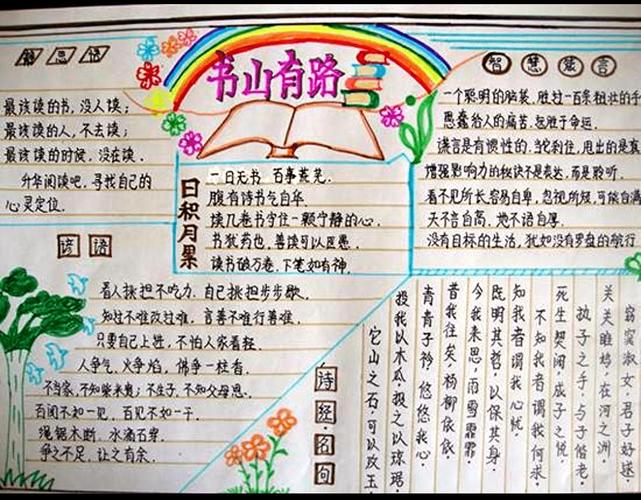 书山有路
思语
最该读的书,没人读;
最该读的人,不去读;
最该读的时候,没在读.
升华阅读吧,寻找自己的
心灵定位.
日积月累
一日无书 百事荒芜.
腹有诗书气自华
读几卷书守住一颗宁静的心.
书犹药也,善读可以医愚.
读书破万卷,下笔如有神.
智慧箴言
一个聪明的脑装,胜过一百条粗壮的手
愚蠢给人的痛苦,怨胜于命运.
谎言是有惯性的.当它刹住,甩出的是真
增强影响力的秘诀不是表达,而是聆听.
看不见所长,容易自卑,忽视所短,可能自满
天不言自高,地不语自厚.
没有目标的生活,犹如没有罗盘的航行
谚语
看人挑担不吃力,自己挑担步步歇.
知过不难改过难,言善不难行善难.
只要自己上进,不怕人家看轻.
人争气,火争焰,佛争一柱香.
不当家,不知柴米贵;不生子,不知父母恩.
百闻不如一见,百见不如一干.
绳锯木断,水滴石穿.
争之不足,让之有余.
诗经名句
窈窕淑女,君子好逑.
关关雎鸠,在河之洲.
执子之手,与子偕老.
死生契阔,成子之悦
不知我者谓我何求
知我者谓我心忧
既明其哲,以保其身.
今我来思,雨雪霏霏
昔我往矣,杨柳依依
青青子衿,悠悠我心.
投我以木瓜,报之以琼琚
它山之石,可以攻玉